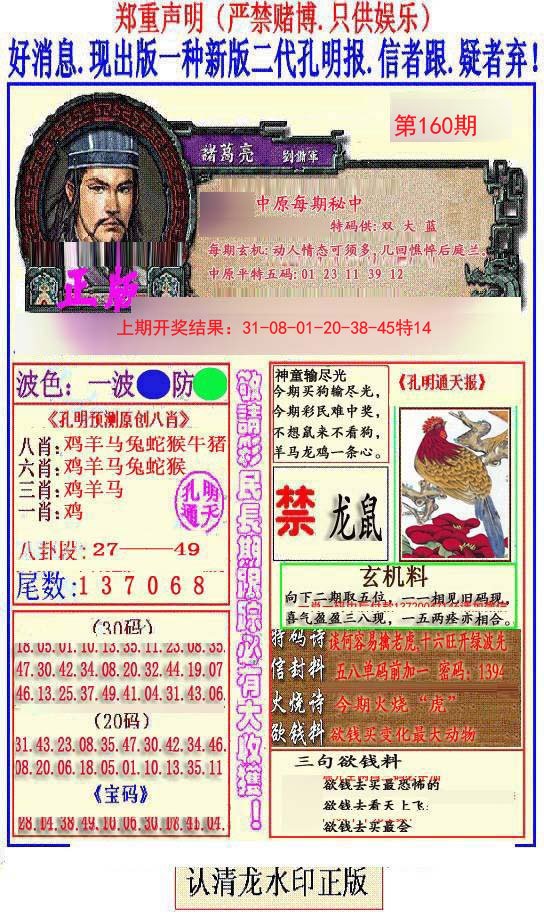 郑重声明（严禁赌博.只供娱乐）
好消息.现出版一种新版二代孔明报.信者跟.疑者弃!
第160期
諸葛亮 劉備軍
中原每期秘中
特码供: 双 大 蓝
每期玄机: 动人情态可须多, 几回憔悴后庭兰。
中原平特五码: 01 23 11 39 12
正版
上期开奖结果：31-08-01-20-38-45特14
波色：一波 防
《孔明预测原创八肖》
八肖: 鸡羊马兔蛇猴牛猪
六肖: 鸡羊马兔蛇猴
三肖: 鸡羊马
一肖: 鸡
孔明
通天
八卦段: 27——49
尾数: 1 3 7 0 6 8
(30码)
18.05.01.10.13.35.11.23.08.35.
47.30.42.34.08.20.32.44.19.07
46.13.25.37.49.41.04.31.43.06.
(20码)
31.43.23.08.35.47.30.42.34.46.
08.20.06.18.05.01.10.13.35.11
《宝码》
28.14.38.49.10.06.30.18.41.04.
敬請彩民長期跟踪必有大收獲！
神童输尽光
今期买狗输尽光，
今期彩民难中奖，
不想鼠来不看狗，
羊马龙鸡一条心。
《孔明通天报》
禁 龙鼠
玄机料
向下二期取五位，一一相见旧码现，
喜气盈盈三八现，一五两痊亦相合。
特码诗 谈何容易擒老虎,十六旺开绿波先
信封料 五八单码前加一 密码: 1394
火烧诗 今期火烧“虎”
欲钱料 欲钱买变化最大动物
三句欲钱料
欲钱去买最恐怖的
欲钱去看天上飞:
欲钱去买最会
认清龙水印正版